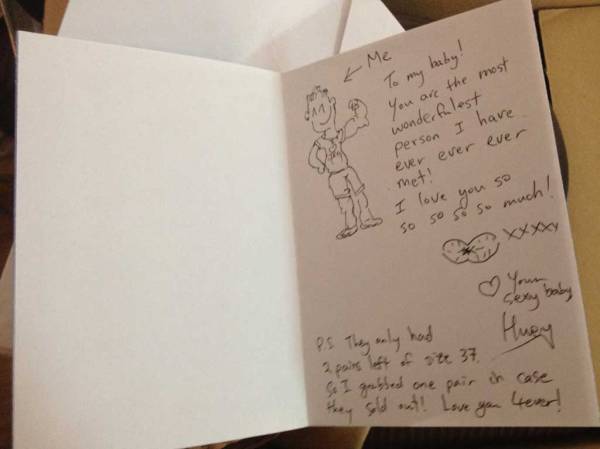 Me
To my baby!
You are the most
wonderfulest
person I have
ever ever ever
met!
I love you so
so so so so much!
xxxxx
♡ Your
sexy baby
Huey
P.S They only had
2 pairs left of size 37.
So I grabbed one pair in case
they sold out! Love you 4ever!